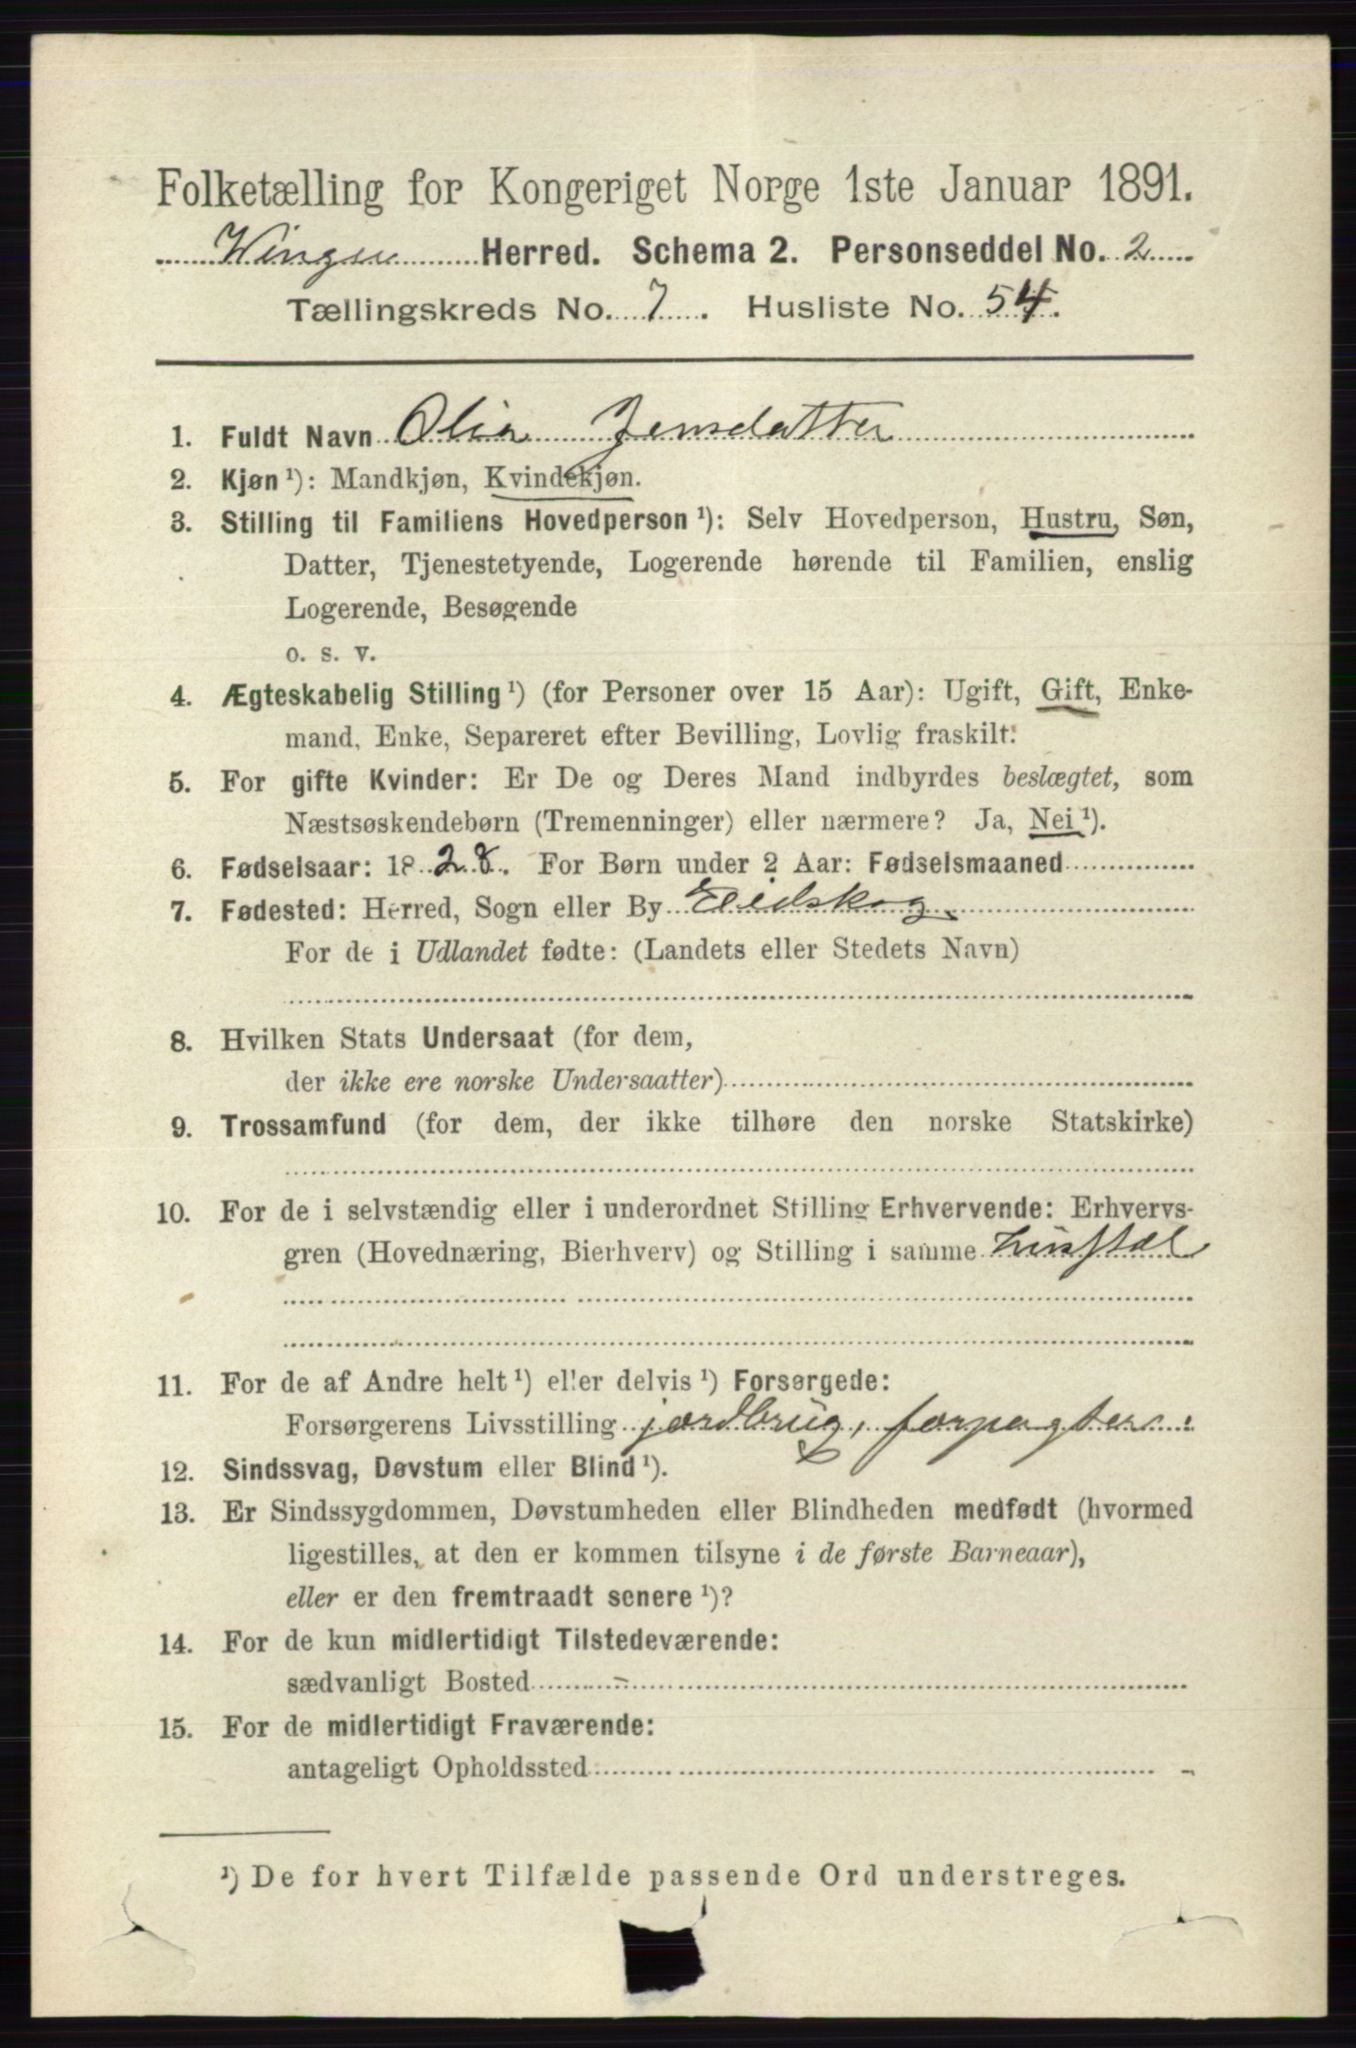 Folketælling for Kongeriget Norge 1ste Januar 1891.
Vinger Herred. Schema 2. Personseddel No. 2
Tællingskreds No. 7. Husliste No. 54.
1. Fuldt Navn Olia Jensdatter
2. Kjøn ¹): Mandkjøn, Kvindekjøn.
3. Stilling til Familiens Hovedperson ¹): Selv Hovedperson, Hustru, Søn,
Datter, Tjenestetyende, Logerende hørende til Familien, enslig
Logerende, Besøgende
o. s. v.
4. Ægteskabelig Stilling ¹) (for Personer over 15 Aar): Ugift, Gift, Enke-
mand, Enke, Separeret efter Bevilling, Lovlig fraskilt.
5. For gifte Kvinder: Er De og Deres Mand indbyrdes beslægtet, som
Næstsøskendebørn (Tremenninger) eller nærmere? Ja, Nei ¹).
6. Fødselsaar: 1828. For Børn under 2 Aar: Fødselsmaaned
7. Fødested: Herred, Sogn eller By Eidskog
For de i Udlandet fødte: (Landets eller Stedets Navn)
8. Hvilken Stats Undersaat (for dem,
der ikke ere norske Undersaatter)
9. Trossamfund (for dem, der ikke tilhøre den norske Statskirke)
10. For de i selvstændig eller i underordnet Stilling Erhvervende: Erhvervs-
gren (Hovednæring, Bierhverv) og Stilling i samme
11. For de af Andre helt ¹) eller delvis ¹) Forsørgede:
Forsørgerens Livsstilling jordbrug, forpagter
12. Sindssvag, Døvstum eller Blind ¹).
13. Er Sindssygdommen, Døvstumheden eller Blindheden medfødt (hvormed
ligestilles, at den er kommen tilsyne i de første Barneaar),
eller er den fremtraadt senere ¹)?
14. For de kun midlertidigt Tilstedeværende:
sædvanligt Bosted -
15. For de midlertidigt Fraværende:
antageligt Opholdssted -
¹) De for hvert Tilfælde passende Ord understreges.